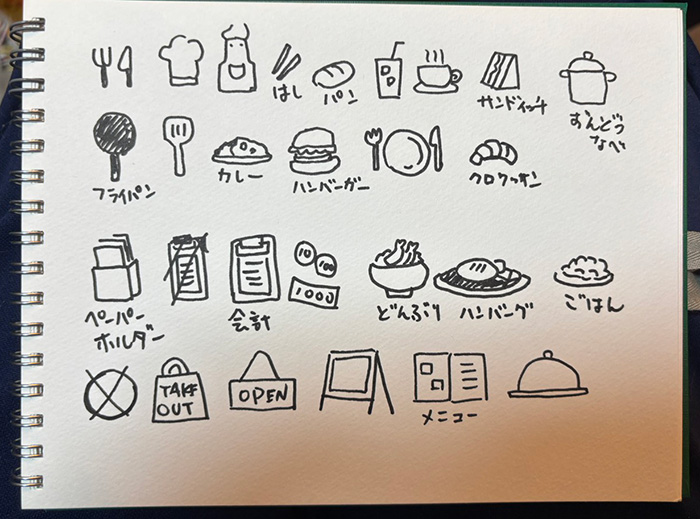 はし
パン
サンドイッチ
ずんどう
なべ
フライパン
カレー
ハンバーガー
クロワッサン
10
100
1000
ペーパー
ホルダー
会計
どんぶり
ハンバーグ
ごはん
TAKE
OUT
OPEN
メニュー